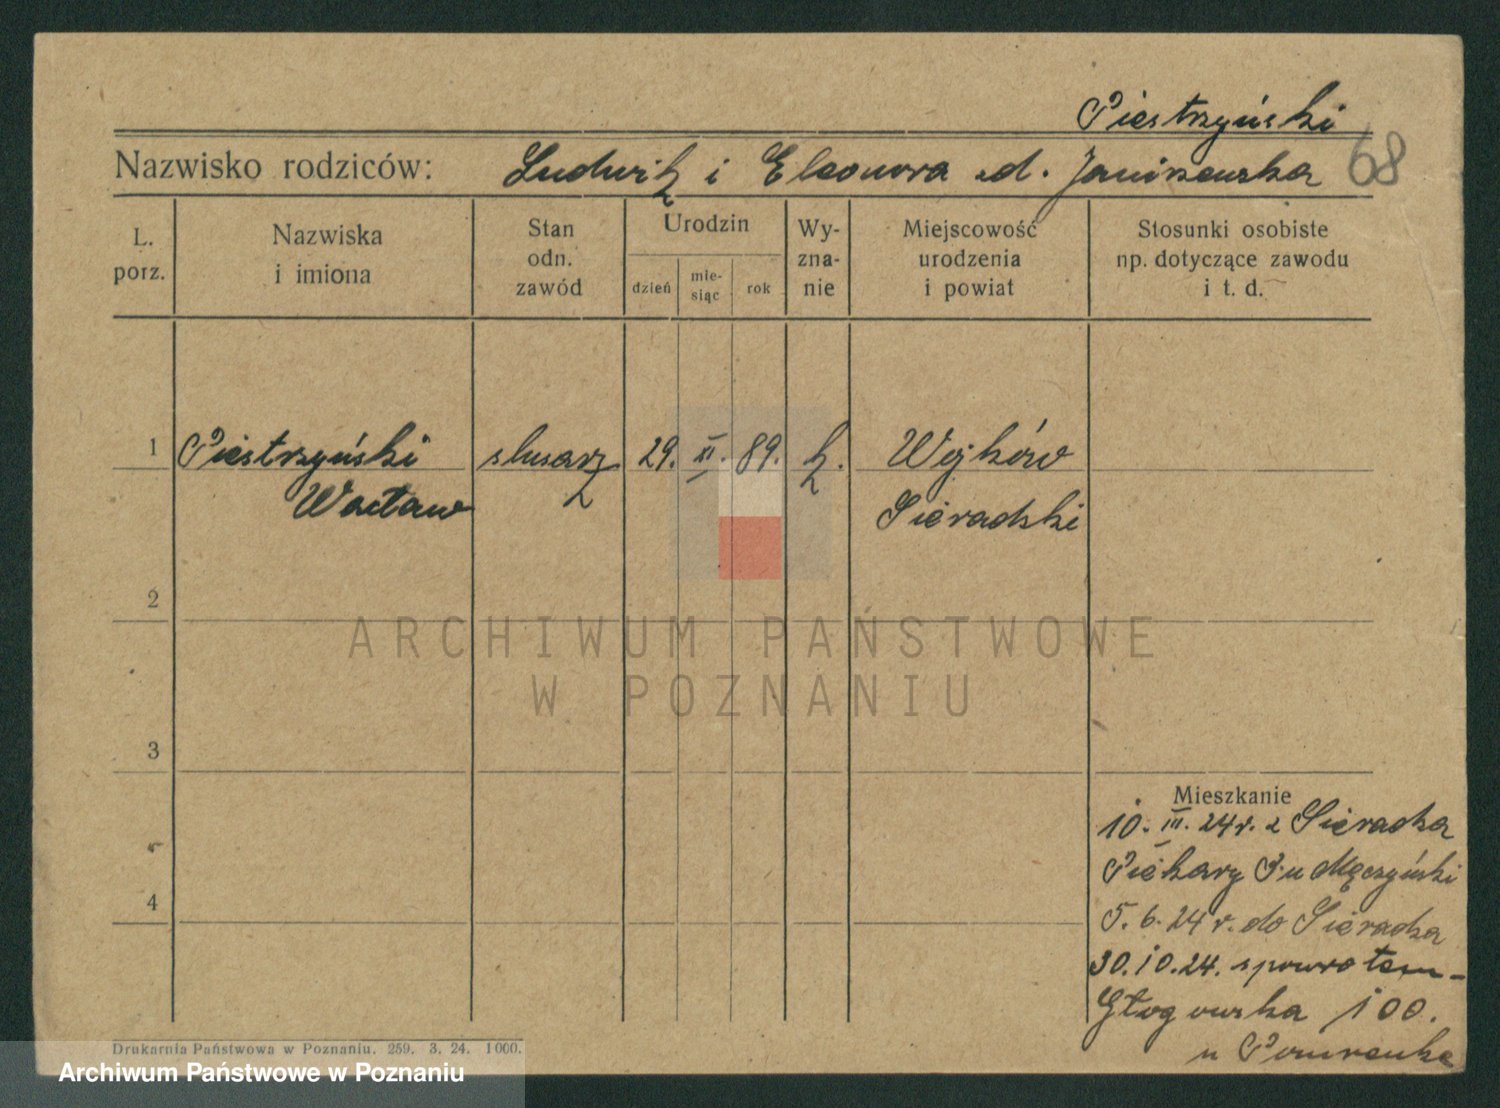 Piestrzyński
Nazwisko rodziców: Ludwik i Eleonora z d. Janiszewska 68
L. porz.
Nazwiska i imiona
Stan odn. zawód
Urodzin
dzień
mie-
siąc
rok
Wy-
zna-
nie
Miejscowość urodzenia i powiat
Stosunki osobiste np. dotyczące zawodu i t. d.
1 Piestrzyński ślusarz 29. XI. 89. k. Wojków
Wacław Sieradzki
2
3
4
Mieszkanie
10. III. 24 r. z Sieradza
Piekary 3 u Męczyński
5. 6. 24 r. do Sieradza
30.10.24. spowrotem -
Głogowska 100.
u
Drukarnia Państwowa w Poznaniu. 259. 3. 24. 1000.
ARCHIWUM PAŃSTWOWE
W POZNANIU
Archiwum Państwowe w Poznaniu